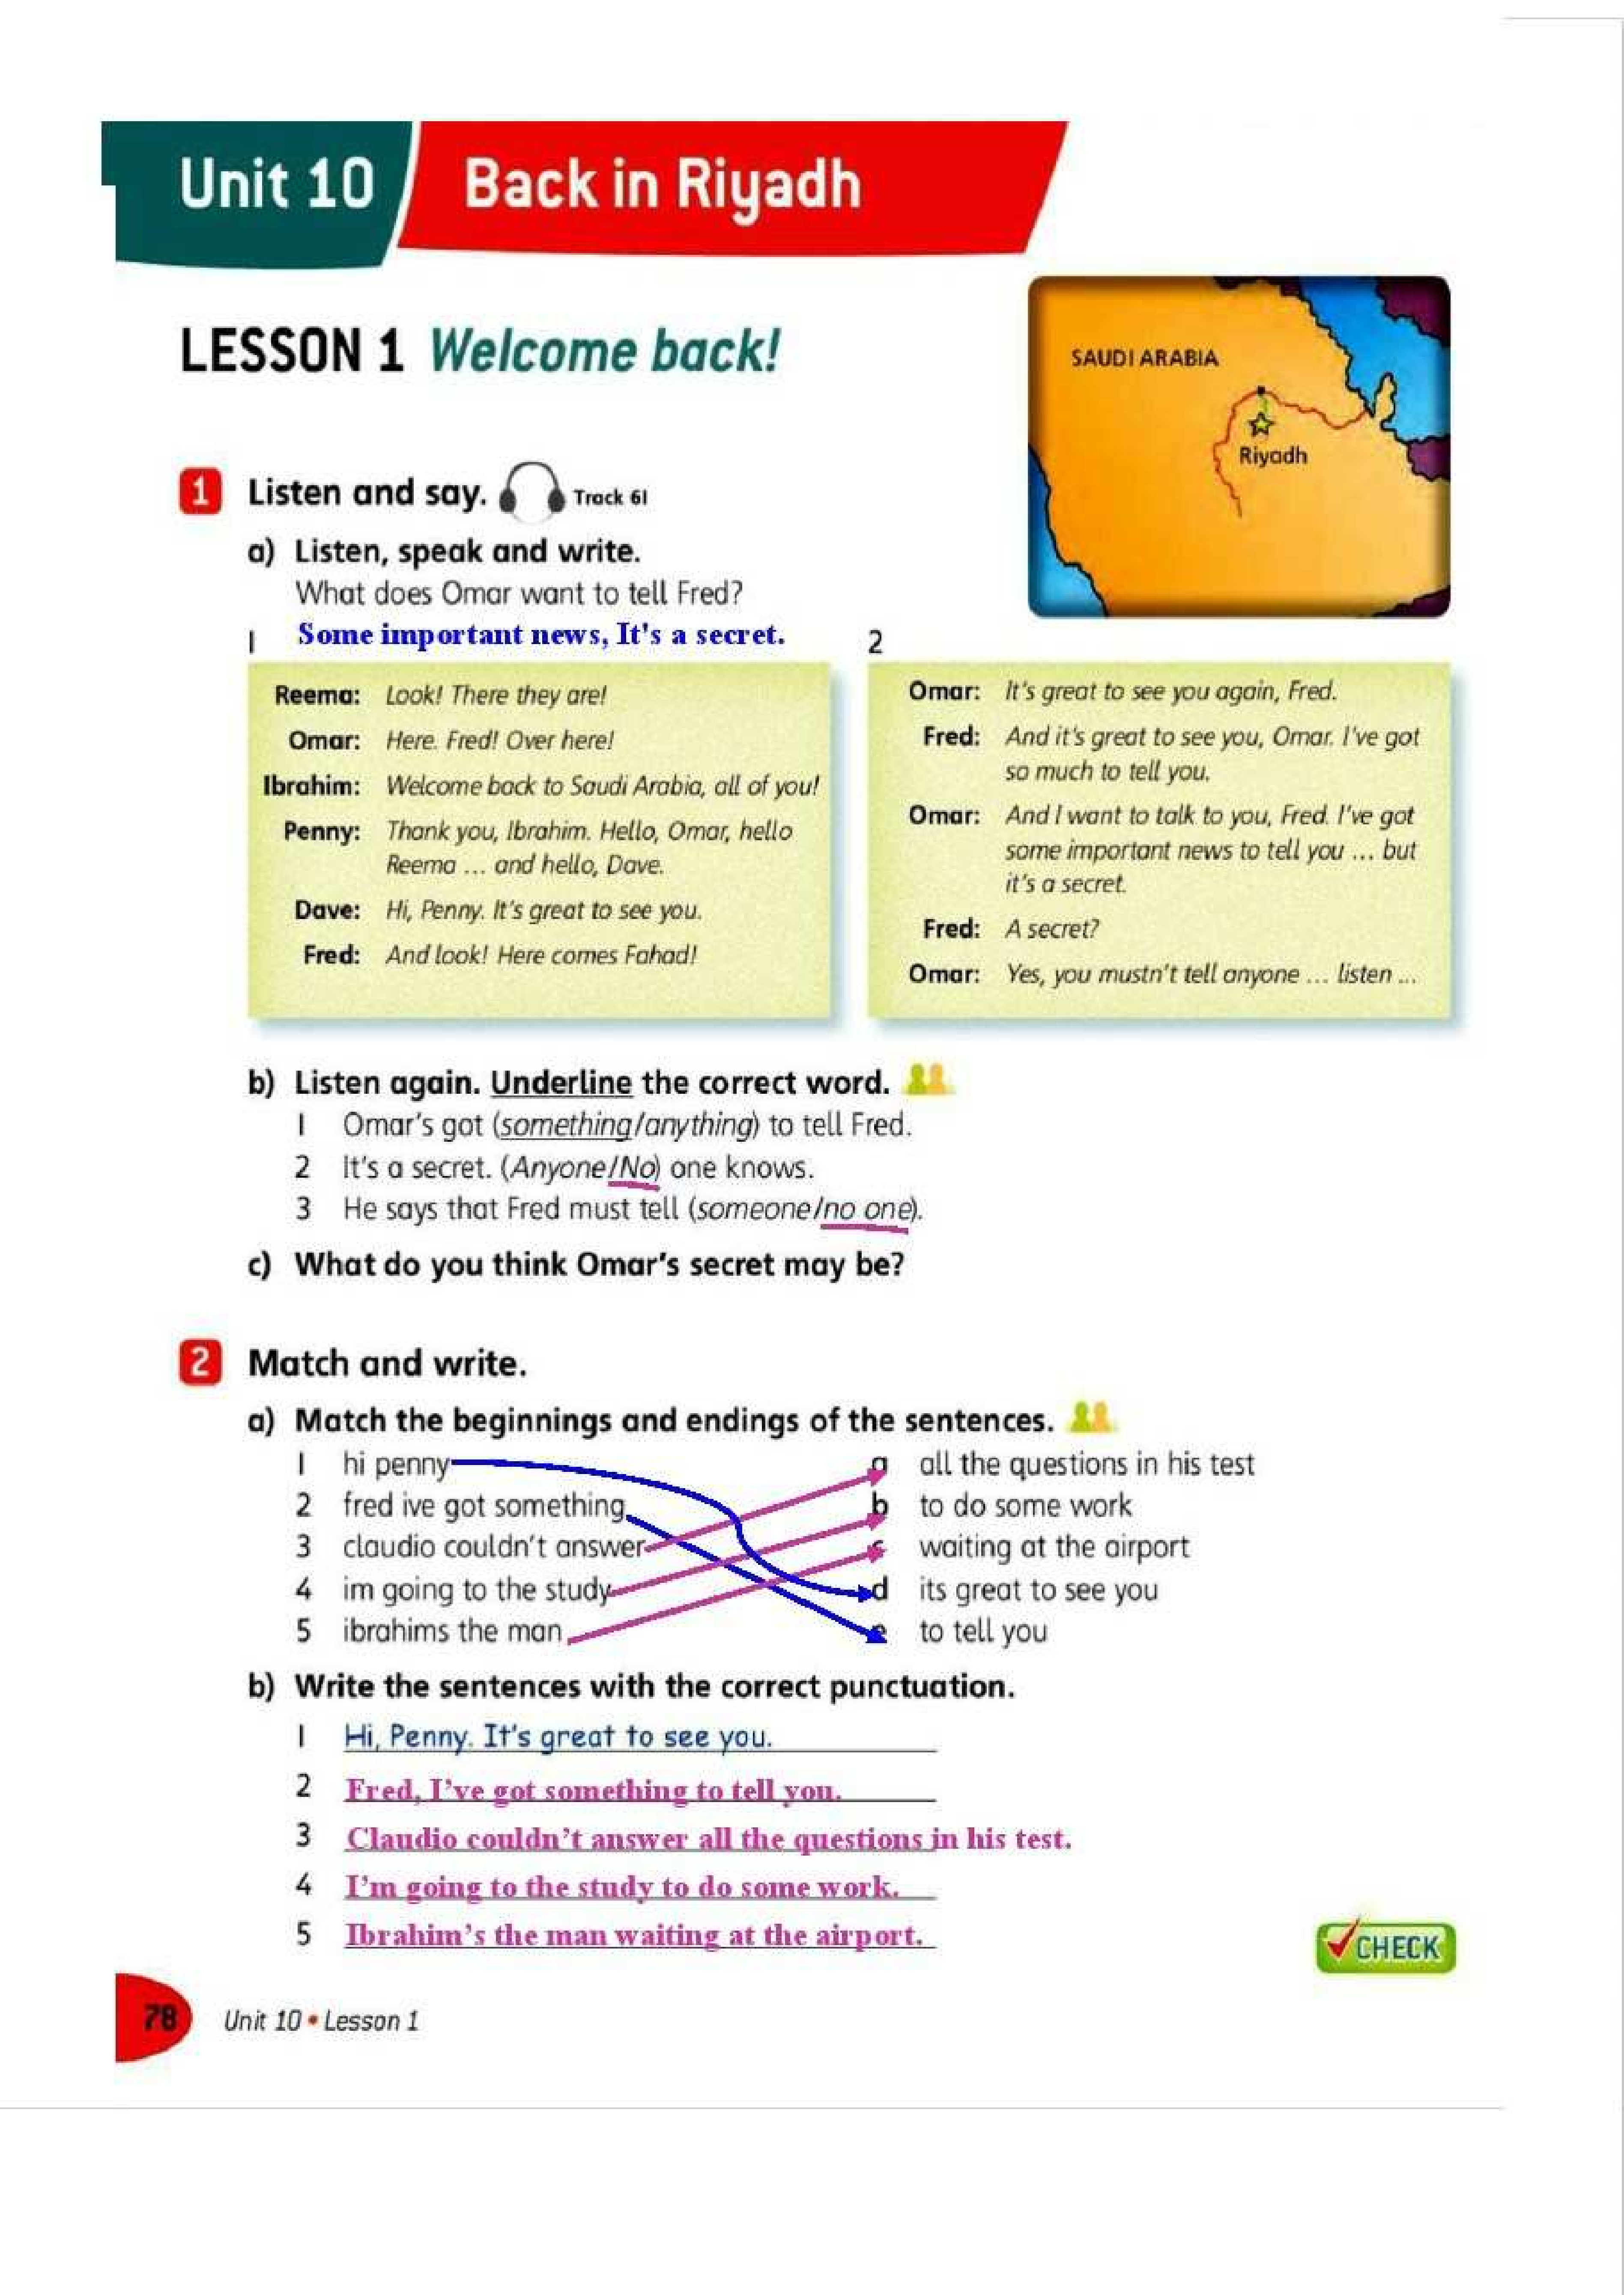 Unit 10 Back in Riyadh
LESSON 1 Welcome back!
SAUDI ARABIA
Riyadh
1 Listen and say. Track 61
a) Listen, speak and write.
What does Omar want to tell Fred?
Some important news, It's a secret.
1
Reema: Look! There they are!
Omar: Here. Fred! Over here!
Ibrahim: Welcome back to Saudi Arabia, all of you!
Penny: Thank you, Ibrahim. Hello, Omar, hello
Reema ... and hello, Dave.
Dave: Hi, Penny. It's great to see you.
Fred: And look! Here comes Fahad!
2
Omar: It's great to see you again, Fred.
Fred: And it's great to see you, Omar. I've got
so much to tell you.
Omar: And I want to talk to you, Fred. I've got
some important news to tell you ... but
it's a secret.
Fred: A secret?
Omar: Yes, you mustn't tell anyone ... listen ...
b) Listen again. Underline the correct word.
1 Omar's got (something/anything) to tell Fred.
2 It's a secret. (Anyone/No) one knows.
3 He says that Fred must tell (someone/no one).
c) What do you think Omar's secret may be?
2 Match and write.
a) Match the beginnings and endings of the sentences.
1 hi penny a all the questions in his test
2 fred ive got something b to do some work
3 claudio couldn't answer c waiting at the airport
4 im going to the study d its great to see you
5 ibrahims the man e to tell you
b) Write the sentences with the correct punctuation.
1 Hi, Penny. It's great to see you.
2 Fred, I've got something to tell you.
3 Claudio couldn't answer all the questions in his test.
4 I'm going to the study to do some work.
5 Ibrahim's the man waiting at the airport.
CHECK
78 Unit 10 • Lesson 1